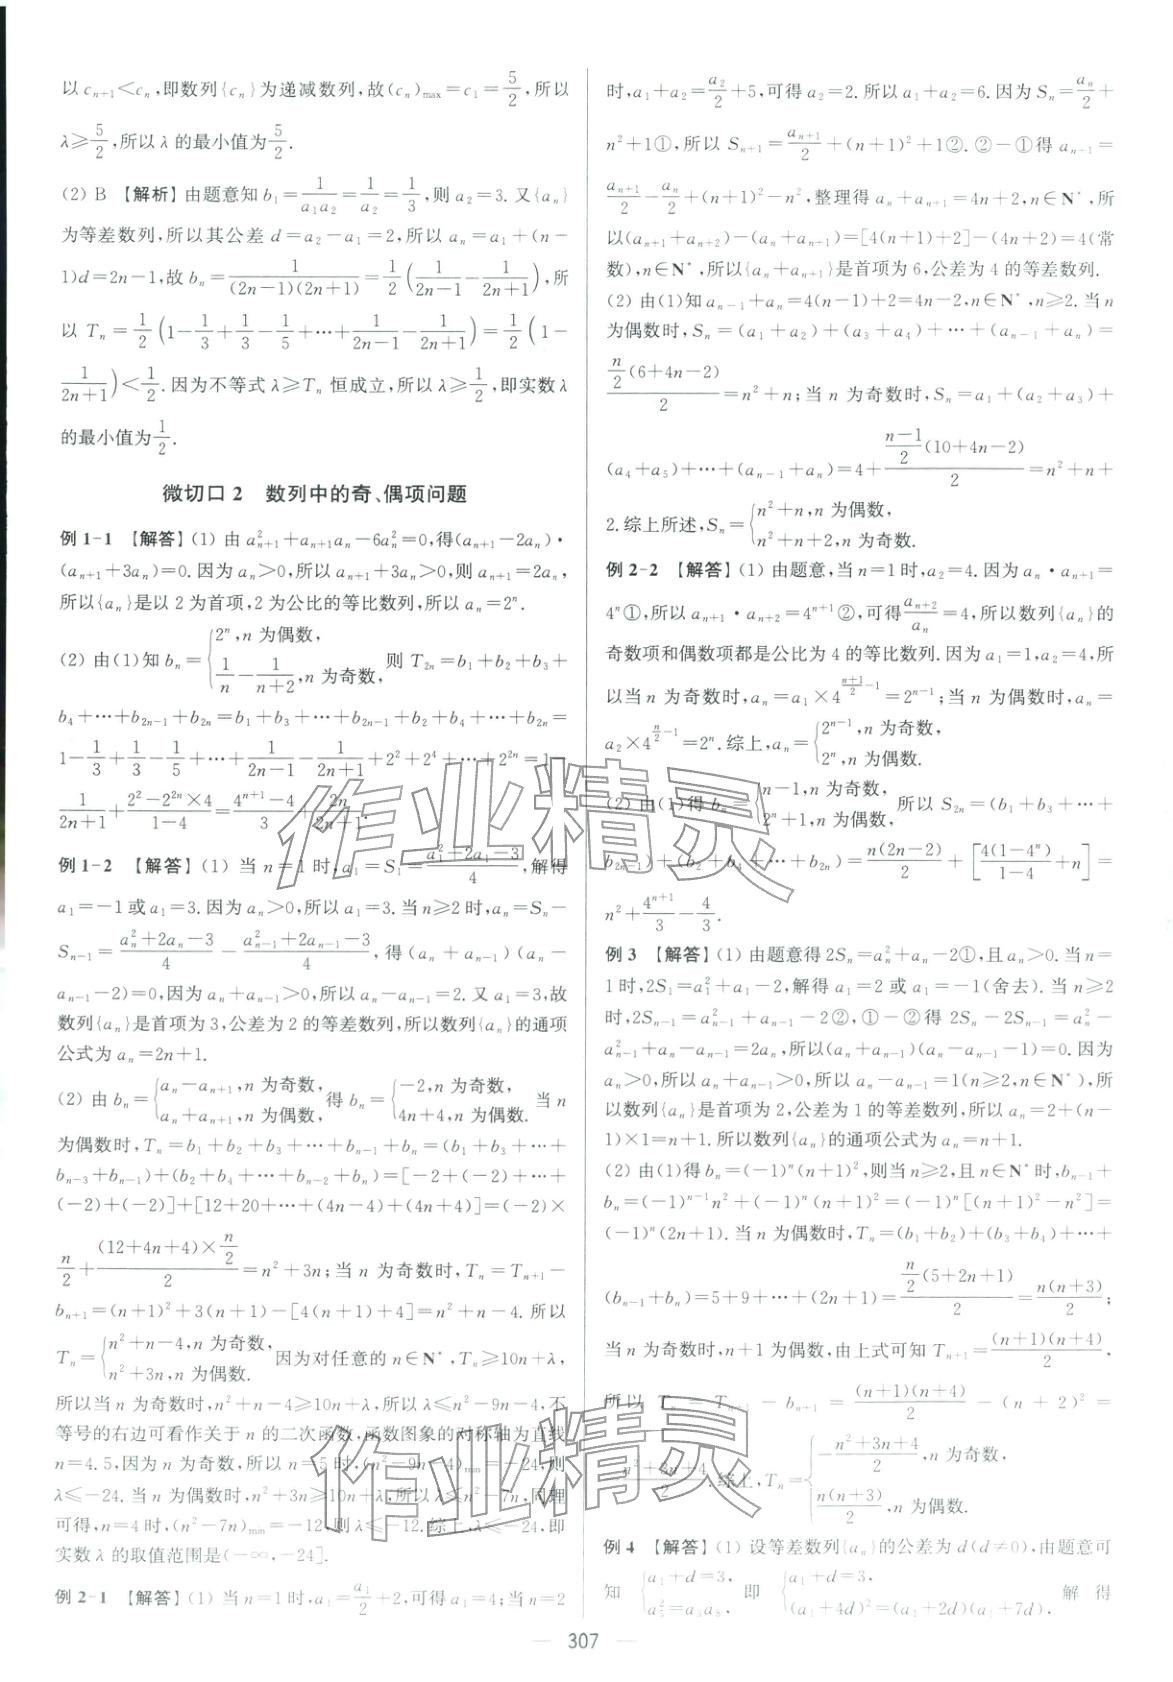 以c_{n+1}<c_n,即数列{c_n}为递减数列,故(c_n)_{max}=c_1=5/2,所以
λ≥5/2,所以λ的最小值为5/2.
(2) B 【解析】由题意知b_1=1/(a_1a_2)=1/a_2=1/3,则a_2=3.又{a_n}
为等差数列,所以其公差d=a_2-a_1=2,所以a_n=a_1+(n-
1)d=2n-1,故b_n=1/((2n-1)(2n+1))=1/2(1/(2n-1)-1/(2n+1)),所
以T_n=1/2(1-1/3+1/3-1/5+…+1/(2n-1)-1/(2n+1))=1/2(1-
1/(2n+1))<1/2.因为不等式λ≥T_n恒成立,所以λ≥1/2,即实数λ
的最小值为1/2.
微切口2 数列中的奇、偶项问题
例1-1 【解答】(1) 由a_{n+1}^2+a_{n+1}a_n-6a_n^2=0,得(a_{n+1}-2a_n)·
(a_{n+1}+3a_n)=0.因为a_n>0,所以a_{n+1}+3a_n>0,则a_{n+1}=2a_n,
所以{a_n}是以2为首项,2为公比的等比数列,所以a_n=2^n.
(2) 由(1)知b_n={2^n,n为偶数, 1/n-1/(n+2),n为奇数, 则T_{2n}=b_1+b_2+b_3+
b_4+…+b_{2n-1}+b_{2n}=b_1+b_3+…+b_{2n-1}+b_2+b_4+…+b_{2n}=
1-1/3+1/3-1/5+…+1/(2n-1)-1/(2n+1)+2^2+2^4+…+2^{2n}=1-
1/(2n+1)+(2^2-2^{2n}×4)/(1-4)=(4^{n+1}-4)/3+2n/(2n+1).
例1-2 【解答】(1) 当n=1时,a_1=S_1=(a_1^2+2a_1-3)/4,解得
a_1=-1或a_1=3.因为a_n>0,所以a_1=3.当n≥2时,a_n=S_n-
S_{n-1}=(a_n^2+2a_n-3)/4-(a_{n-1}^2+2a_{n-1}-3)/4,得(a_n+a_{n-1})(a_n-
a_{n-1}-2)=0,因为a_n+a_{n-1}>0,所以a_n-a_{n-1}=2.又a_1=3,故
数列{a_n}是首项为3,公差为2的等差数列,所以数列{a_n}的通项
公式为a_n=2n+1.
(2) 由b_n={a_n-a_{n+1},n为奇数, a_n+a_{n+1},n为偶数, 得b_n={-2,n为奇数, 4n+4,n为偶数. 当n
为偶数时,T_n=b_1+b_2+b_3+…+b_{n-1}+b_n=(b_1+b_3+…+
b_{n-3}+b_{n-1})+(b_2+b_4+…+b_{n-2}+b_n)=[-2+(-2)+…+
(-2)+(-2)]+[12+20+…+(4n-4)+(4n+4)]=(-2)×
n/2+((12+4n+4)×n/2)/2=n^2+3n;当n为奇数时,T_n=T_{n+1}-
b_{n+1}=(n+1)^2+3(n+1)-[4(n+1)+4]=n^2+n-4.所以
T_n={n^2+n-4,n为奇数, n^2+3n,n为偶数. 因为对任意的n∈N*,T_n≥10n+λ,
所以当n为奇数时,n^2+n-4≥10n+λ,所以λ≤n^2-9n-4,不
等号的右边可看作关于n的二次函数,函数图象的对称轴为直线
n=4.5,因为n为奇数,所以n=5时,(n^2-9n-4)_{min}=-24,则
λ≤-24.当n为偶数时,n^2+3n≥10n+λ,所以λ≤n^2-7n,同理
可得,n=4时,(n^2-7n)_{min}=-12,则λ≤-12.综上,λ≤-24,即
实数λ的取值范围是(-∞,-24].
例2-1 【解答】(1) 当n=1时,a_1=a_1/2+2,可得a_1=4;当n=2
时,a_1+a_2=a_2/2+5,可得a_2=2.所以a_1+a_2=6.因为S_n=a_n/2+
n^2+1①,所以S_{n+1}=a_{n+1}/2+(n+1)^2+1②.②-①得a_{n+1}=
a_{n+1}/2-a_n/2+(n+1)^2-n^2,整理得a_n+a_{n+1}=4n+2,n∈N*,所
以(a_{n+1}+a_{n+2})-(a_n+a_{n+1})=[4(n+1)+2]-(4n+2)=4(常
数),n∈N*,所以{a_n+a_{n+1}}是首项为6,公差为4的等差数列.
(2) 由(1)知a_{n-1}+a_n=4(n-1)+2=4n-2,n∈N*,n≥2.当n
为偶数时,S_n=(a_1+a_2)+(a_3+a_4)+…+(a_{n-1}+a_n)=
(n/2(6+4n-2))/2=n^2+n;当n为奇数时,S_n=a_1+(a_2+a_3)+
(a_4+a_5)+…+(a_{n-1}+a_n)=4+((n-1)/2(10+4n-2))/2=n^2+n+
2.综上所述,S_n={n^2+n,n为偶数, n^2+n+2,n为奇数.
例2-2 【解答】(1) 由题意,当n=1时,a_2=4.因为a_n·a_{n+1}=
4^n①,所以a_{n+1}·a_{n+2}=4^{n+1}②,可得a_{n+2}/a_n=4,所以数列{a_n}的
奇数项和偶数项都是公比为4的等比数列.因为a_1=1,a_2=4,所
以当n为奇数时,a_n=a_1×4^{(n+1)/2-1}=2^{n-1};当n为偶数时,a_n=
a_2×4^{n/2-1}=2^n.综上,a_n={2^{n-1},n为奇数, 2^n,n为偶数.
(2) 由(1)得b_n={n-1,n为奇数, 2^n+1,n为偶数, 所以S_{2n}=(b_1+b_3+…+
b_{2n-1})+(b_2+b_4+…+b_{2n})=n(2n-2)/2+[4(1-4^n)/(1-4)+n]=
n^2+4^{n+1}/3-4/3.
例3 【解答】(1) 由题意得2S_n=a_n^2+a_n-2①,且a_n>0.当n=
1时,2S_1=a_1^2+a_1-2,解得a_1=2或a_1=-1(舍去).当n≥2
时,2S_{n-1}=a_{n-1}^2+a_{n-1}-2②,①-②得2S_n-2S_{n-1}=a_n^2-
a_{n-1}^2+a_n-a_{n-1}=2a_n,所以(a_n+a_{n-1})(a_n-a_{n-1}-1)=0.因为
a_n>0,所以a_n+a_{n-1}>0,所以a_n-a_{n-1}=1(n≥2,n∈N*),所
以数列{a_n}是首项为2,公差为1的等差数列,所以a_n=2+(n-
1)×1=n+1.所以数列{a_n}的通项公式为a_n=n+1.
(2) 由(1)得b_n=(-1)^n(n+1)^2,则当n≥2,且n∈N*时,b_{n-1}+
b_n=(-1)^{n-1}n^2+(-1)^n(n+1)^2=(-1)^n[(n+1)^2-n^2]=
(-1)^n(2n+1).当n为偶数时,T_n=(b_1+b_2)+(b_3+b_4)+…+
(b_{n-1}+b_n)=5+9+…+(2n+1)=(n/2(5+2n+1))/2=n(n+3)/2;
当n为奇数时,n+1为偶数,由上式可知T_{n+1}=(n+1)(n+4)/2.
所以T_n=T_{n+1}-b_{n+1}=(n+1)(n+4)/2-(n+2)^2=
-(n^2+3n+4)/2.综上,T_n={-(n^2+3n+4)/2,n为奇数, n(n+3)/2,n为偶数.
例4 【解答】(1) 设等差数列{a_n}的公差为d(d≠0),由题意可
知{a_1+d=3, a_5^2=a_3a_8, 即{a_1+d=3, (a_1+4d)^2=(a_1+2d)(a_1+7d). 解得
307
作业精灵
作业精灵